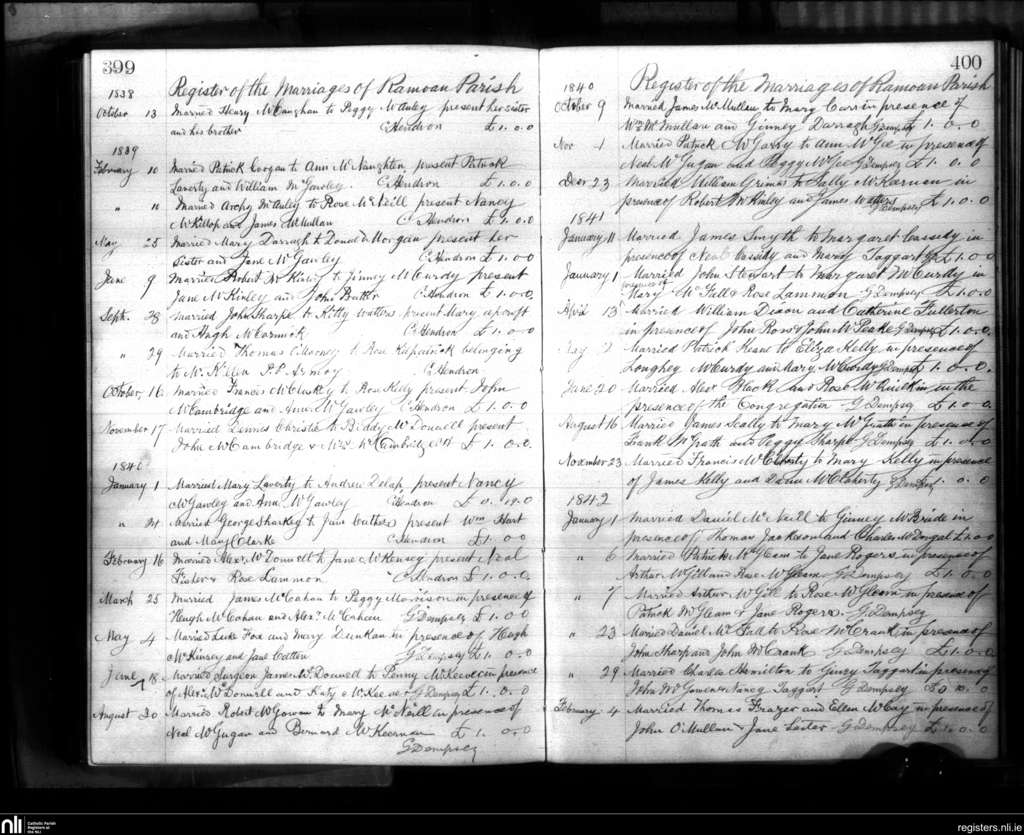 399
Register of the Marriages of Ramoan Parish
1838
October 13 Married Henry McCaughan to Peggy McAuley present her sister
and his brother C Hendron £1.0.0
1839
February 10 Married Patrick Coogan to Ann McNaughten present Patrick
Laverty and William McGawley. C Hendron £1.0.0
" 11 Married Archy McAuley to Rose McNeill present Nancy
McKillop and James McMullan C Hendron £1.0.0
May 25 Married Mary Darragh to Donald Morgan present her
Sister and Jane McGawley C Hendron £1.0.0
June 9 Married Robert McKinly to Jinney McCurdy present
Jane McKinley and John Butler C Hendron £1.0.0.
Septr. 28 Married John Sharpe to Kitty Watters present Mary
and Hugh McCormick C Hendron £1.0.0
" 29 Married Thomas Mooney to Rose Kilpatrick belonging
to Mr Killen P.P. Armoy C Hendron
October 16 Married Francis McClusky to Rose Kelly present John
McCambridge and Ann McGawley C Hendron £1.0.0
November 17 Married Dennis Christie to Biddy McDonnell present
John McCambridge & Wm. McCambridge £1.0.0.
1840
January 1 Married Mary Laverty to Andrew Delap present Nancy
McGawley and Ann McGawley C Hendron £0.19.0
" 24 Married George Sharkey to Jane Cathers present Wm Hart
and Mary Clarke C Hendron £1.0.0
February 16 Married Alexr. McDonnell to Jane McKensey present Neal
Fister & Rose Lammon C Hendron £1.0.0.
March 25 Married James McCoahan to Peggy Morrison in presence of
Hugh McCahan and Alexr. McCahan G Dempsey £1.0.0
May 4 Married Luke Fox and Mary Dunkan in presence of Hugh
McKinsey and Jane Catten G Dempsey £1.0.0
June 18 Married Surgeon James McDonnell to Penny McKeever in presence
of Alexr. McDonnell and Katy McKeever G Dempsey £1.0.0
August 20 Married Robert McGowan to Mary McNeill in presence of
Neal McGugan and Bernard McKeernan £1.0.0
G Dempsey
400
Register of the Marriages of Ramoan Parish
1840
October 9 Married James McMullen to Mary Curr in presence of
Wm McMullan and Ginney Darragh G Dempsey £1.0.0
Nov 1 Married Patrick McGarry to Ann McGee in presence of
Neal McGugan and Peggy McGee G Dempsey £1.0.0
Decr 23 Married William Grimes to Sally McKiernan in
presence of Robert McKinley and James Watters G Dempsey £1.0.0
1841
January 11 Married James Smyth to Margaret Cassidy in
presence of Neal Cassidy and Mary Taggart £1.0.0
January 1 Married John Stewart to Margaret McCurdy in
presence of Mary McFall & Rose Lammon G Dempsey £1.0.0.
April 13 Married William Dixon and Catherine Fullerton
in presence of John Row & John McPeake G Dempsey £1.0.0.
May Married Patrick Keane to Eliza Kelly in presence of
Loughey McCurdy and Mary McCurdy G Dempsey £1.0.0
June 20 Married Alexr Black and Rose McQuilkin in the
presence of the Congregation G Dempsey £1.0.0.
August 16 Married James Scally to Mary McGrath in presence of
Frank McGrath and Peggy Sharpe G Dempsey £1.0.0
November 23 Married Francis McClaherty to Mary Kelly in presence
of James Kelly and Dann McClaherty G Dempsey 1.0.0
1842
January 1 Married Daniel McNeill to Ginney McBride in
presence of Thomas Jackson and Charles McDougal £1.0.0
" 6 Married Patrick McGleam to Jane Rogers in presence of
Arthur McGill and Rose McGleam G Dempsey £1.0.0
" 7 Married Arthur McGill to Rose McGleam in presence of
Patrick McGleam & Jane Rogers. G Dempsey
" 23 Married Daniel McFall to Rose McCrank in presence of
John Sharp and John McCrank G Dempsey £1.0.0
" 29 Married Charles Hamilton to Giney Taggart in presence of
John McGowen & Nancy Taggart G Dempsey £0.10.0
February 4 Married Thomas Frazer and Ellen McCay in presence of
John O'Mullan & Jane Lester G Dempsey £1.0.0
nli Catholic Parish
Registers at
the NLI
registers.nli.ie